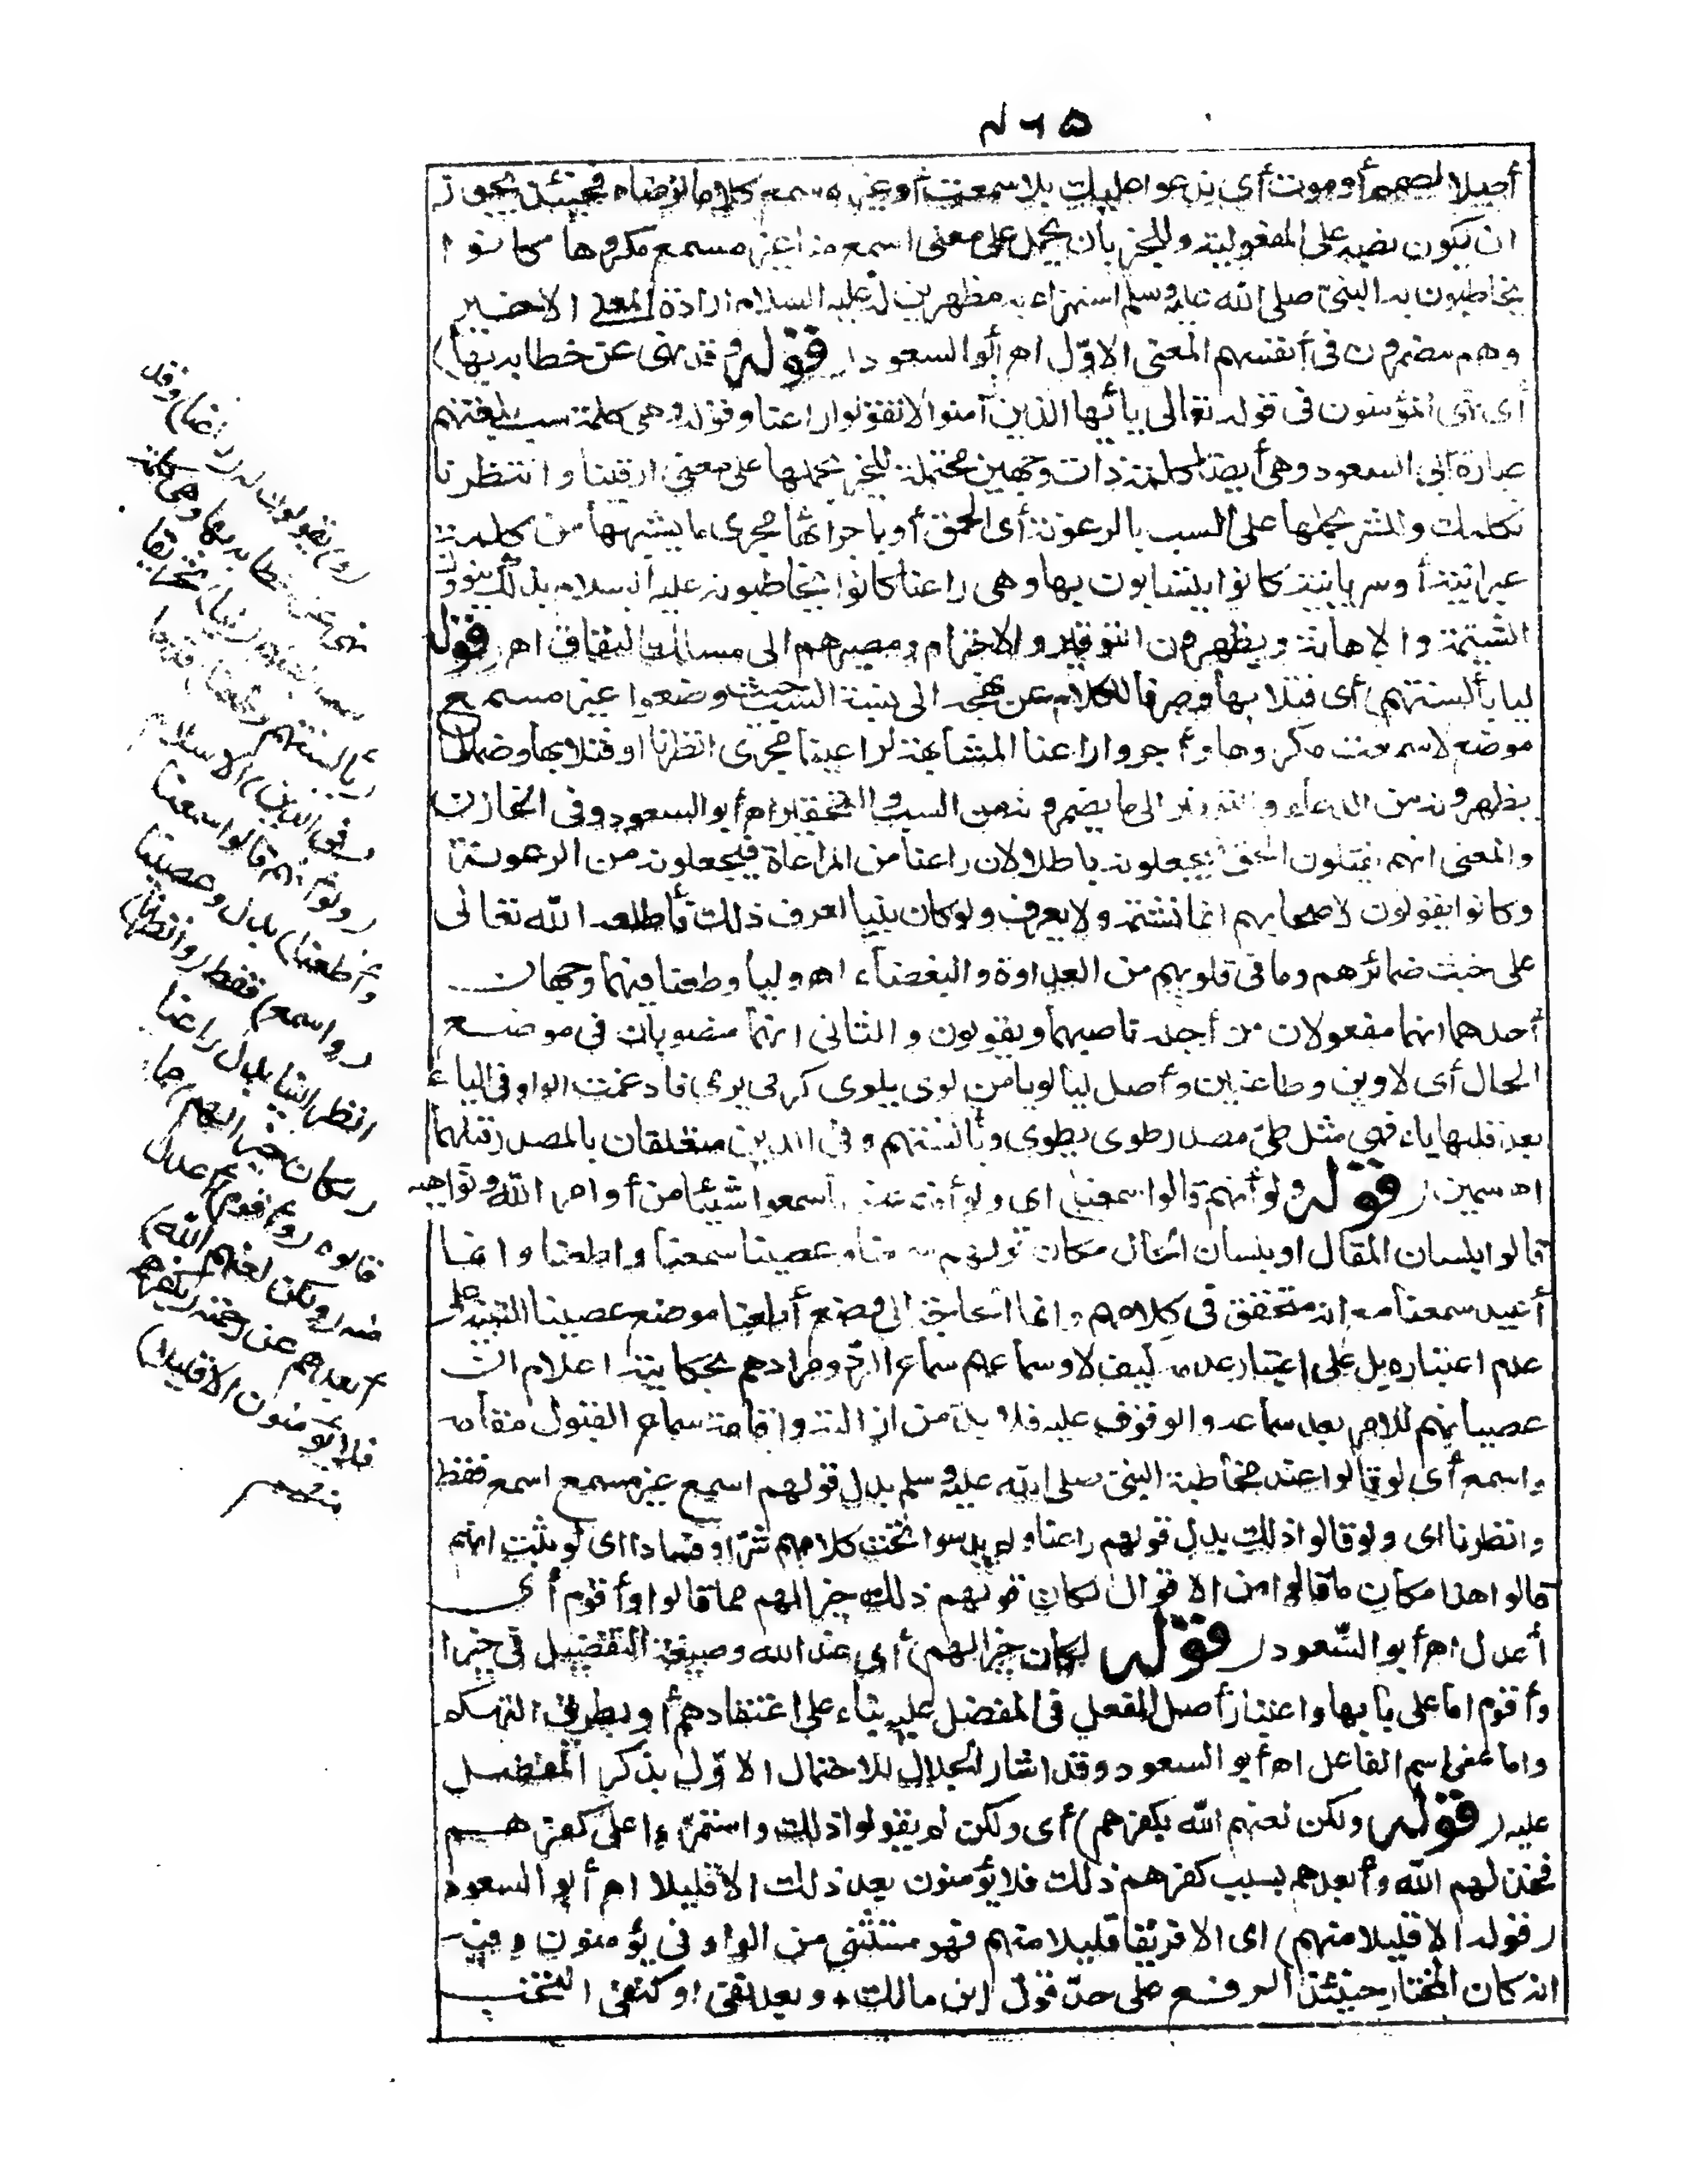 أصلا لصمم أو موت أي يدعو عليك بلا سمعت أو غير مسمع كلاما ترضاه فحينئذ يجوز
ان يكون نصبه على المفعولية وللخير بأن يحمل على معنى اسمع منا غير مسمع مكروها كانوا
يخاطبون به النبي صلى الله عليه وسلم استهزاء به مظهرين له عليه السلام ارادة المعنى الاخير
وهم مضمرون في أنفسهم المعنى الاول اهـ أبو السعود (قوله وقد نهى عن خطابه بها)
أي نهى المؤمنون في قوله تعالى يأيها الذين آمنوا لا تقولوا راعنا وقوله وهي كلمة سب بلغتهم
عبارة أبي السعود وهي أيضا كلمة ذات وجهين محتملة للخير بحملها على معنى ارقبنا وانتظرنا
نكلمك وللشر بحملها على السب بالرعونة أي الحمق أو باجرائها مجرى ما يشبهها من كلمة
عبرانية أو سريانية كانوا يتسابون بها وهي راعنا كانوا يخاطبونه عليه السلام بذلك ينوون
الشتيمة والاهانة ويظهرون التوقير والاحترام ومصيرهم الى مسالك النفاق اهـ (قوله
ليا بألسنتهم) أي فتلا بها وصرفا للكلام عن نهجه الى نسبة السب حيث وضعوا غير مسمع
موضع لاسمعت مكروها وأجروا راعنا المشابهة لراعينا مجرى انظرنا أو فتلا بها وضما لما
يظهرونه من الدعاء والتوقير الى ما يضمرونه من السب والتحقير اهـ أبو السعود وفي الخازن
والمعنى انهم يفتلون الحق فيجعلونه باطلا لان راعنا من المراعاة فيجعلونه من الرعونة
وكانوا يقولون لاصحابهم انما نشتمه ولا يعرف ولو كان نبيا لعرف ذلك فأطلعه الله تعالى
على خبث ضمائرهم وما في قلوبهم من العداوة والبغضاء اهـ وليا وطعنا فيهما وجهان
أحدهما انهما مفعولان من أجله ناصبهما ويقولون والثاني انهما منصوبان في موضع
الحال أي لاوين وطاعنين وأصل ليا لويا من لوى يلوى كرمى يرمى فادغمت الواو في الياء
بعد قلبها ياء فهي مثل طي مصدر طوى يطوى وبألسنتهم وفي الدين متعلقان بالمصدر قبلهما
اهـ سمين (قوله ولو أنهم قالوا سمعنا) اي ولو أنهم عند ما سمعوا شيئا من أوامر الله ونواهيه
قالوا بلسان المقال او بلسان الحال مكان قولهم سمعنا وعصينا سمعنا واطعنا وانما
أعيد سمعنا مع انه متحقق في كلامهم وانما الحاجة الى وضع أطعنا موضع عصينا للتنبيه على
عدم اعتباره بل على اعتبار عدمه كيف لا وسماعهم سماع الرد ومرادهم بحكايته اعلام ان
عصيانهم للامر بعد سماعه والوقوف عليه فلا بد من ازالته واقامة سماع القبول مقامه
واسمع أي لو قالوا عند مخاطبة النبي صلى الله عليه وسلم بدل قولهم اسمع غير مسمع اسمع فقط
وانظرنا اى ولو قالوا ذلك بدل قولهم راعنا ولم يدسوا تحت كلامهم شرا وفسادا اى لو ثبت انهم
قالوا هذا مكان ما قالوا من الاقوال لكان قولهم ذلك خيرا لهم مما قالوا وأقوم أي
أعدل اهـ أبو السعود (قوله لكان خيرا لهم) أي عند الله وصيغة التفضيل في خيرا
وأقوم اما على بابها واعتبار أصل الفعل في المفضل عليه بناء على اعتقادهم أو بطريق التهكم
واما بمعنى اسم الفاعل اهـ أبو السعود وقد اشار الجلال للاحتمال الاول بذكر المفضل
عليه (قوله ولكن لعنهم الله بكفرهم) أي ولكن لم يقولوا ذلك واستمروا على كفرهم
فخذلهم الله وأبعدهم بسبب كفرهم ذلك فلا يؤمنون بعد ذلك الا قليلا اهـ أبو السعود
(قوله الا قليلا منهم) اى الا فريقا قليلا منهم فهو مستثنى من الواو في يؤمنون وفيه
انه كان المختار حينئذ الرفع على حد قول ابن مالك * وبعد نفي او كنفي انتخب
(و) يقولون له (راعنا) وقد
نهى عن خطابه بها وهي كلمة
سب بلغتهم (ليا) تحريفا
(بألسنتهم وطعنا) قدحا
(في الدين) الاسلام
(ولو أنهم قالوا سمعنا
وأطعنا) بدل وعصينا
(واسمع) فقط (وانظرنا)
انظر الينا بدل راعنا
(لكان خيرا لهم) مما
قالوه (وأقوم) أعدل
منه (ولكن لعنهم الله)
أبعدهم عن رحمته (بكفرهم
فلا يؤمنون الا قليلا)
منهم